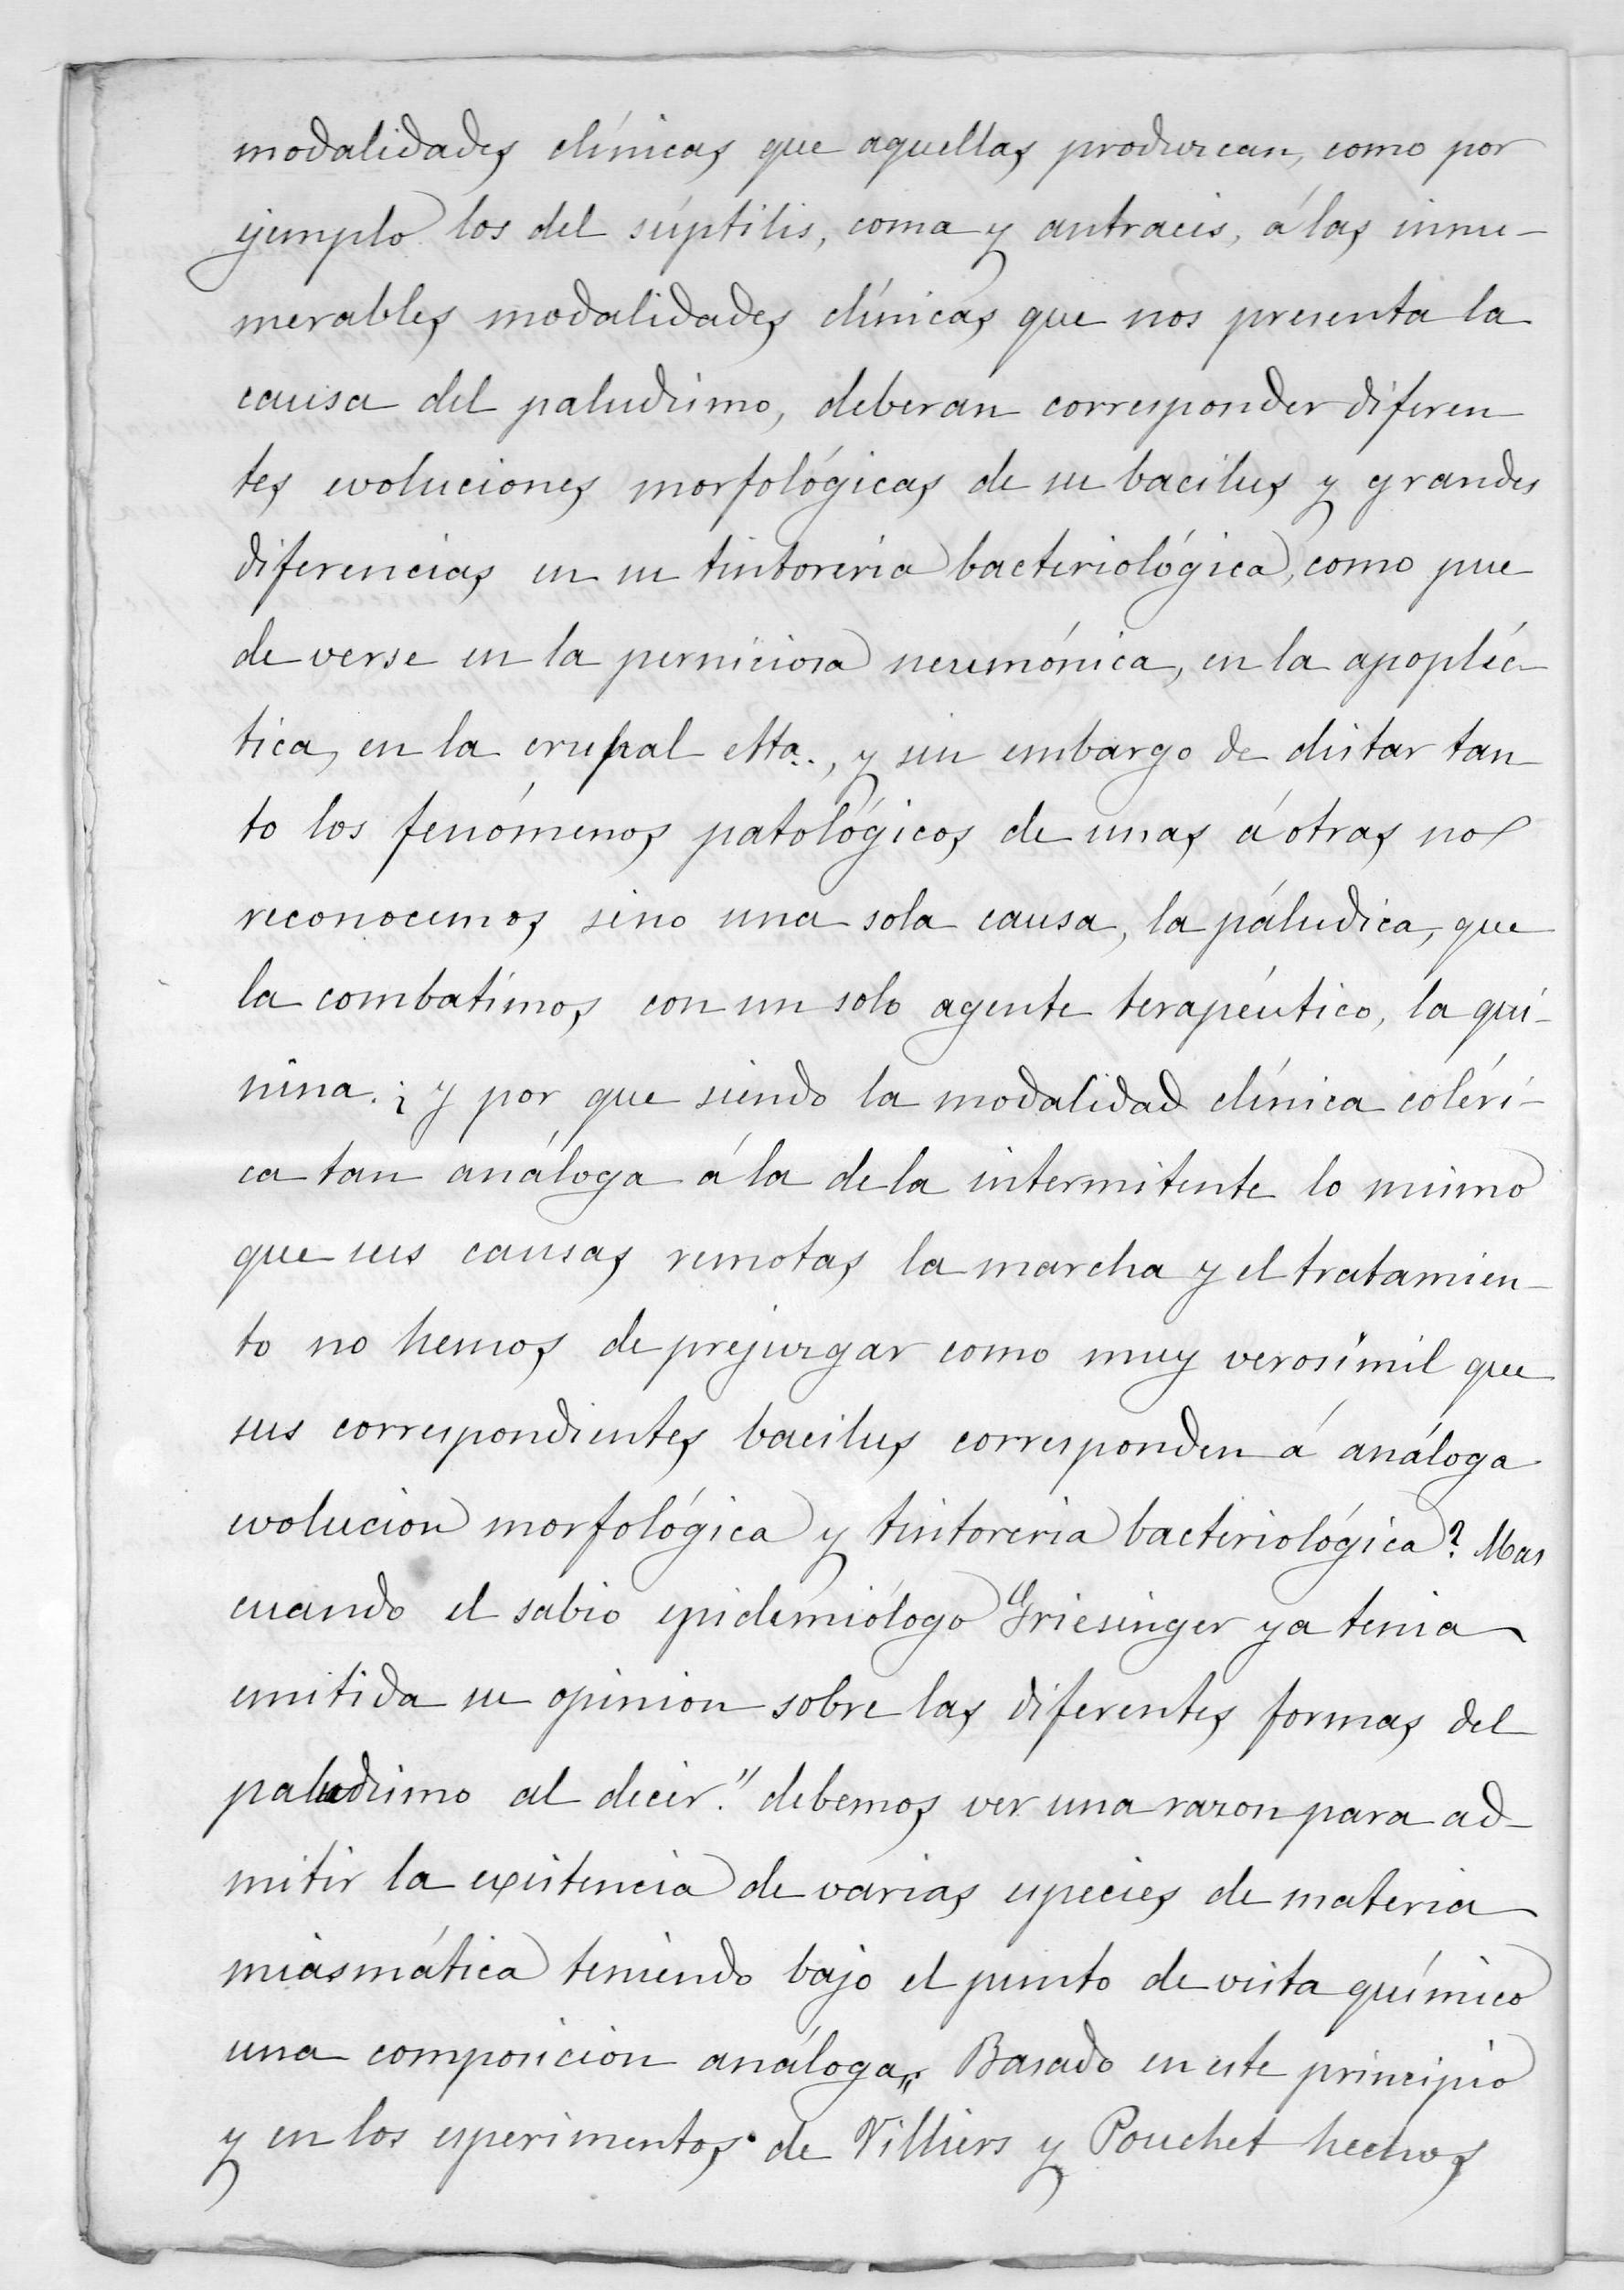 modalidades clínicas que aquellas produzcan, como por
ejemplo los del súptilis, coma y antracis, á las innu-
merables modalidades clínicas que nos presenta la
causa del paludismo, deberan corresponder diferen
tes evoluciones morfológicas de su bacilus y grandes
diferencias en su tintoreria bacteriológica, como pue
de verse en la perniciosa neumónica, en la apopléc
tica, en la crupal etta.., y sin embargo de distar tan
to los fenómenos patológicos de unas á otras no
reconocemos sino una sola causa, la páludica, que
la combatímos con un solo agente terapéutico, la qui-
nina. ¿ y por que siendo la modalidad clínica coléri-
ca tan análoga á la de la intermitente lo mismo
que sus causas remotas la marcha y el tratamien-
to no hemos de prejuzgar como muy verosímil que
sus correspondientes bacilus corresponden á análoga
evolucion morfológica y tintoreria bacteriológica? Mas
cuando el sabio epidemiólogo Griesinger ya tenia
emitida su opinion sobre las diferentes formas del
paludismo al decir." debemos ver una razon para ad-
mitir la existencia de varias especies de materia
miasmática teniendo bajo el punto de vista químico
una composicion análoga„. Basado en este principio
y en los esperimentos de Villiers y Pouchet hechos